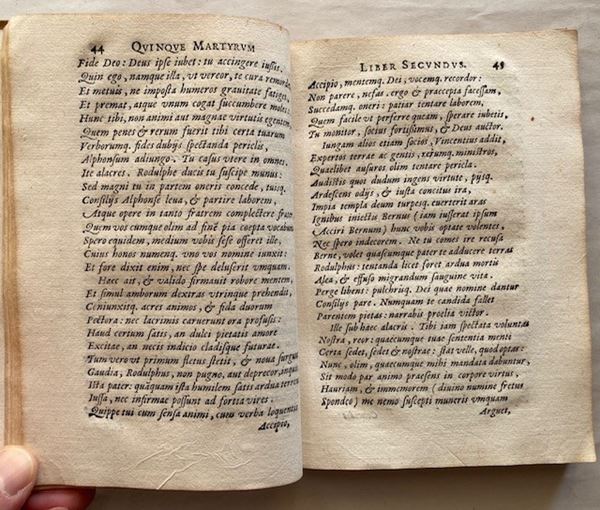 44 QVINQVE MARTYRVM
Fide Deo: Deus ipse iubet: tu accingere iussis.
Quin ego, namque ista, ut vereor, te cura remordet,
Et metuis, ne imposita humeros grauitate fatiget,
Et premat, atque vnum cogat succumbere moles:
Hunc tibi, non animi aut magnae virtutis egentem,
Quem penes & rerum fuerit tibi certa tuarum
Verborumq. fides dubijs spectanda periclis,
Alphonsum adiungo. Tu casus vtere in omnes.
Ite alacres. Rodulphe ducis tu suscipe munus:
Sed magni tu in partem oneris concede, tuisq.
Consilijs Alphonse leua, & partire laborem,
Atque opere in tanto fratrem complectere frater
Quem vos cumque olim ad finē pia coepta vocabunt
Spero equidem, medium vobis sese offeret ille,
Cuius honos numenq. vno vos nomine iunxit:
Et fore dixit enim, nec spe deluserit vmquam.
Haec ait, & valido firmauit robore mentem,
Et simul amborum dextras vtrinque prehendit,
Coniunxitq. acres animos, & fida duorum
Pectora: nec lacrimis caruerunt ora profusis:
Haud certum satis, an dulci pietatis amore
Excitae, an necis indicio cladisque futurae.
Tum vero vt primum fletus stetit, & noua surgunt
Gaudia, Rodulphus, non pugno, aut deprecor, inquit
Ista pater: quāquam ista humilem satis ardua terrent
Iussa, nec infirmae possunt ad fortia vires.
Quippe tui cum sensa animi, cum verba loquentis
Accipio,
LIBER SECVNDVS. 45
Accipio, mentemq. Dei, vocemq. recordor:
Non parere, nefas. ergo & praecepta facessam,
Succedamq. oneri: patiar tentare laborem,
Quem facile vt perferre queam, sperare iubetis,
Tu monitor, socius fortissimus, & Deus auctor.
Iungam alios etiam socios, Vincentius addit,
Expertos terrae ac gentis, rerumq. ministros,
Quaelibet ausuros olim tentare pericla.
Audistis quot dudum ingens virtute, pijsq.
Ardescens odijs, & iusta concitus ira,
Impia templa deum turpesq. euerterit aras
Ignibus iniectis Bernus (iam iusserat ipsum
Acciri Bernum) hunc vobis optate volentes,
Nec spero indecorem. Ne tu comes ire recusa
Berne, volet quacumque pater te adducere terras
Rodulphus: tentanda licet foret ardua mortis
Alea, & effuso migrandum sanguine vita.
Perge libens: pulchriq. Dei quae nomine dantur
Consilijs pare. Numquam te candida fallet
Parentem pietas: narrabis proelia victor.
Ille sub haec alacris. Tibi iam spectata voluntas
Nostra, reor: quaecumque tuae sententia menti
Certa sedet, sedet & nostrae: stat velle, quod optas:
Nunc, olim, quaecumque mihi mandata dabuntur,
Sit modo par animo praesens in corpore virtus,
Hauriam, & immemorem (diuino numine fretus
Spondeo) me nemo suscepti muneris vmquam
Arguet,